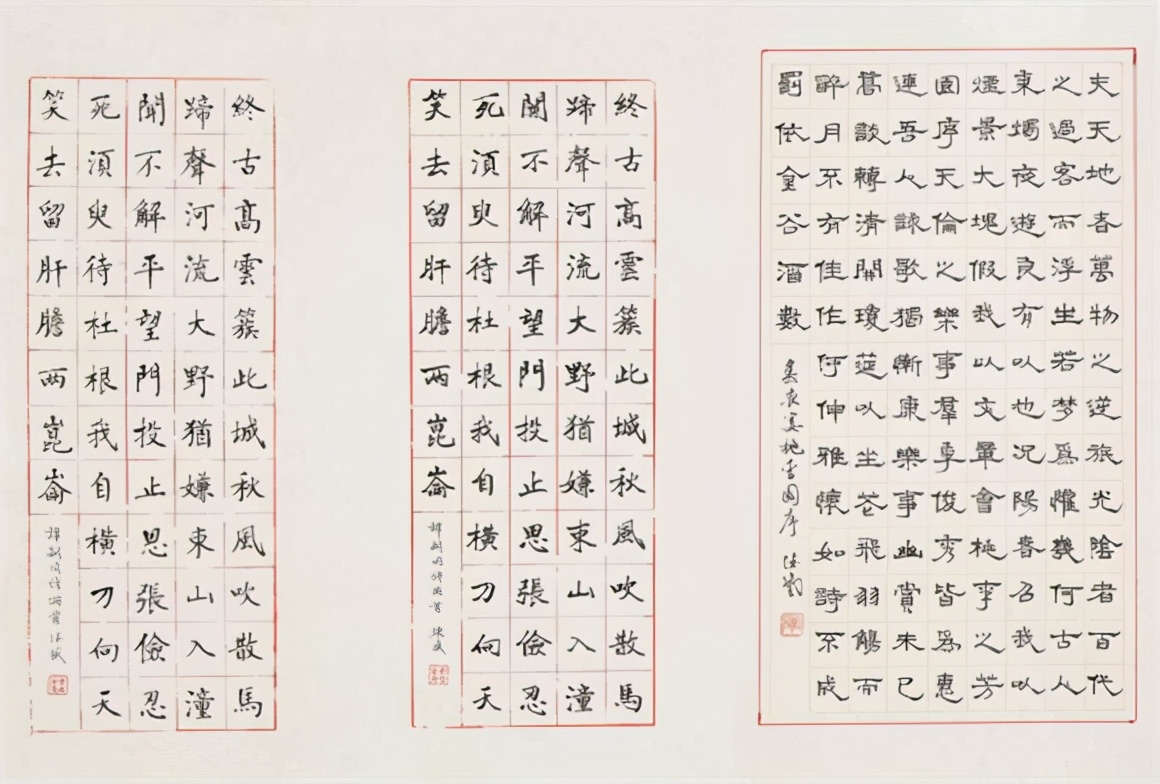 夫天地者萬物之逆旅光陰者百代
之過客而浮生若梦爲懽幾何古人
秉燭夜遊良有以也況陽春召我以
煙景大塊假我以文章會桃李之芳
園序天倫之樂事羣季俊秀皆爲惠
連吾人詠歌獨慚康樂事幽賞未已
高談轉清開瓊筵以坐花飛羽觴而
醉月不有佳作何伸雅懷如詩不成
罰依金谷酒數
春夜宴桃李園序
終古高雲簇此城秋風吹散馬
蹄聲河流大野猶嫌束山入潼
關不解平望門投止思張儉忍
死須臾待杜根我自橫刀向天
笑去留肝膽兩崑崙
譚嗣同詩兩首
終古高雲簇此城秋風吹散馬
蹄聲河流大野猶嫌束山入潼
關不解平望門投止思張儉忍
死須臾待杜根我自橫刀向天
笑去留肝膽兩崑崙
譚嗣同詩兩首